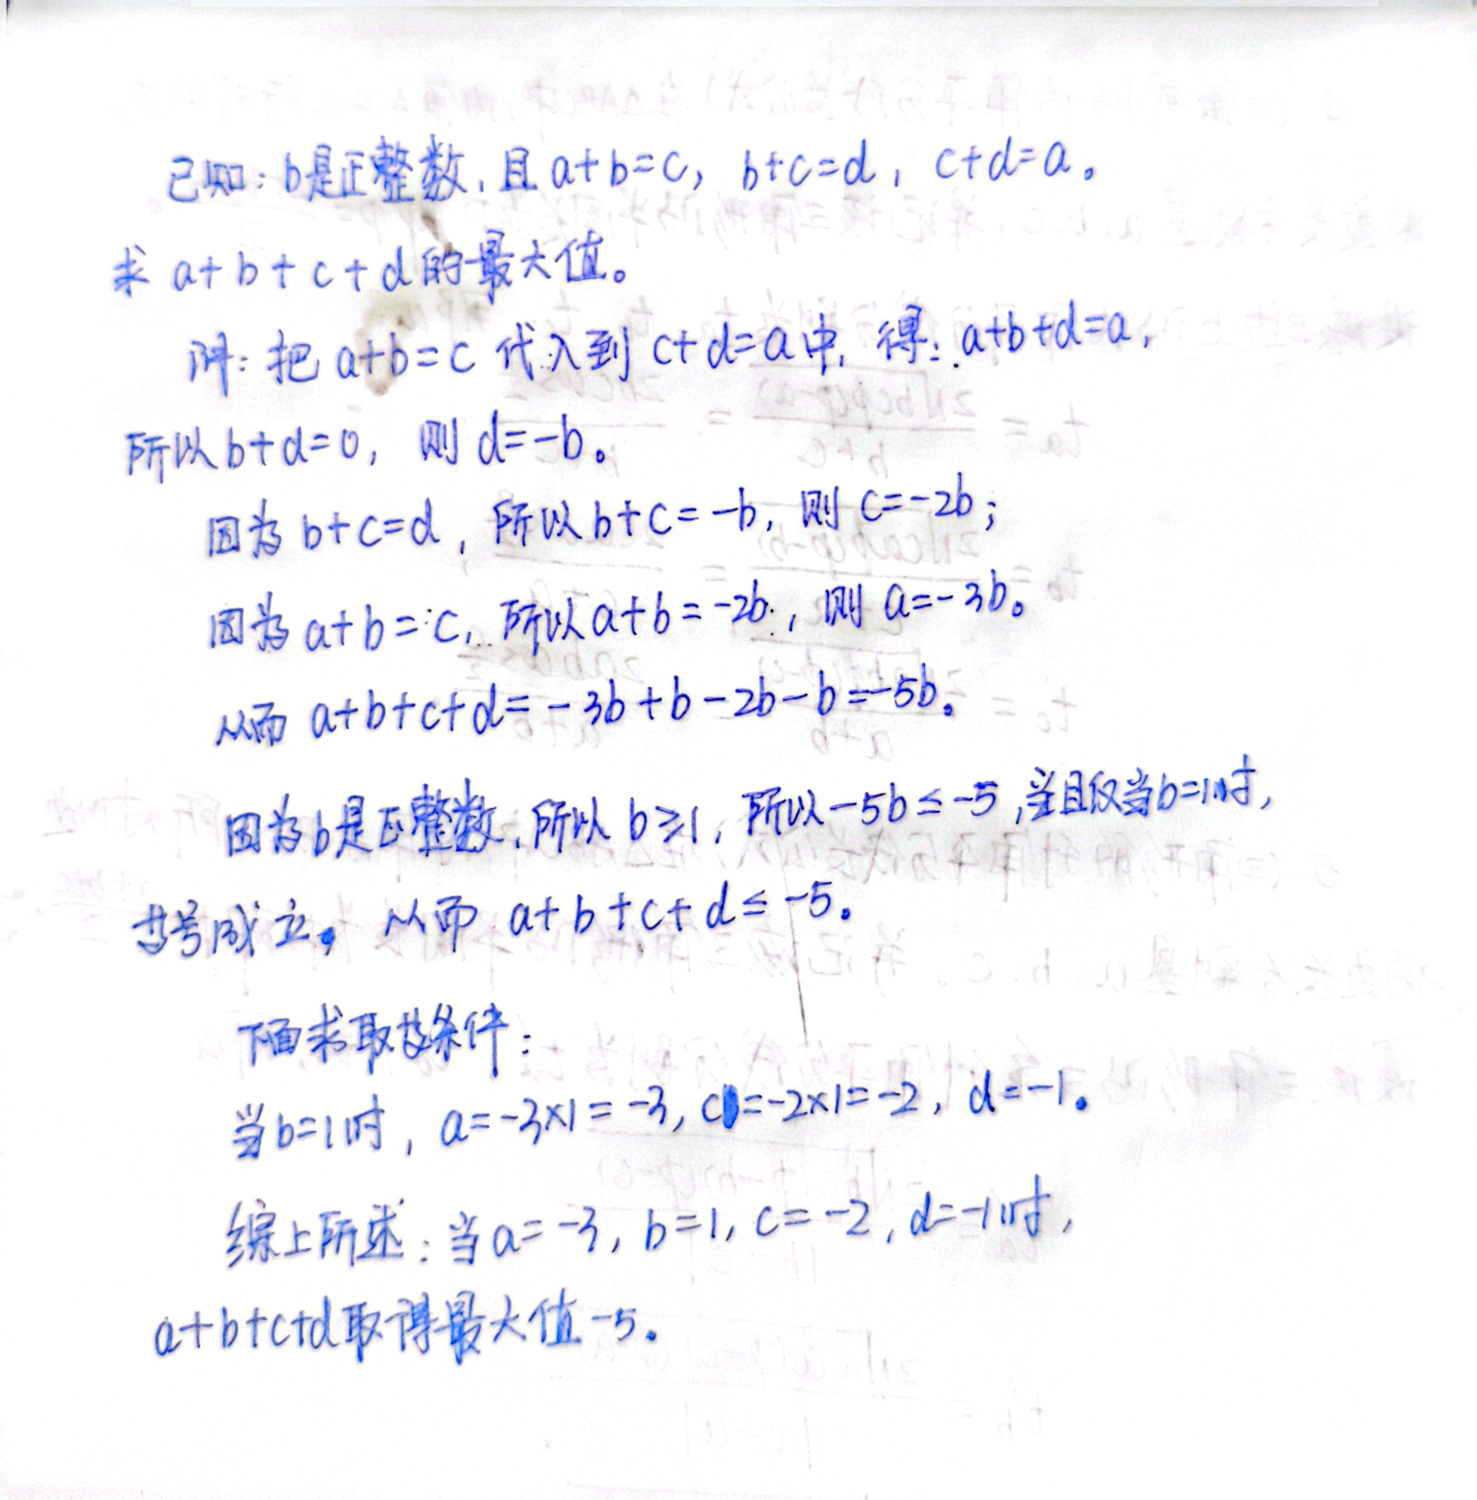 已知：b是正整数，且a+b=c，b+c=d，c+d=a。
求a+b+c+d的最大值。
解：把a+b=c代入到c+d=a中，得：a+b+d=a，
所以b+d=0，则d=-b。
因为b+c=d，所以b+c=-b，则c=-2b；
因为a+b=c，所以a+b=-2b，则a=-3b。
从而a+b+c+d=-3b+b-2b-b=-5b。
因为b是正整数，所以b≥1，所以-5b≤-5，当且仅当b=1时，
等号成立。从而a+b+c+d≤-5。
下面求取等条件：
当b=1时，a=-3×1=-3，c=-2×1=-2，d=-1。
综上所述：当a=-3，b=1，c=-2，d=-1时，
a+b+c+d取得最大值-5。